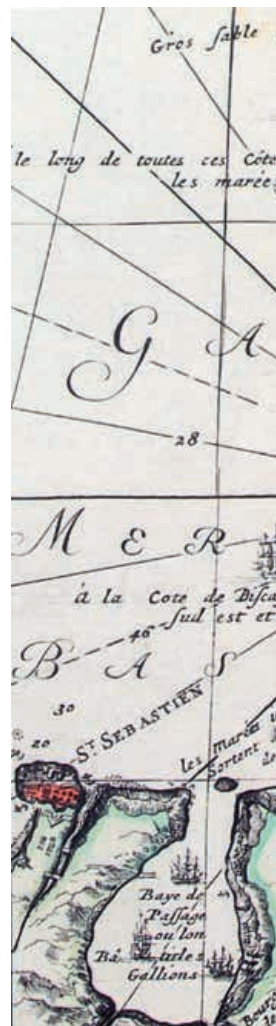 Gros sable
le long de toutes ces Côte
les marées
G A
28
M E R
à la Cote de Bisca
sud est et
46
B A S
30
St SEBASTIEN
20
les Marées
Sortent
de
Baye de
Passage
ou lon
Ba titles
Gallions